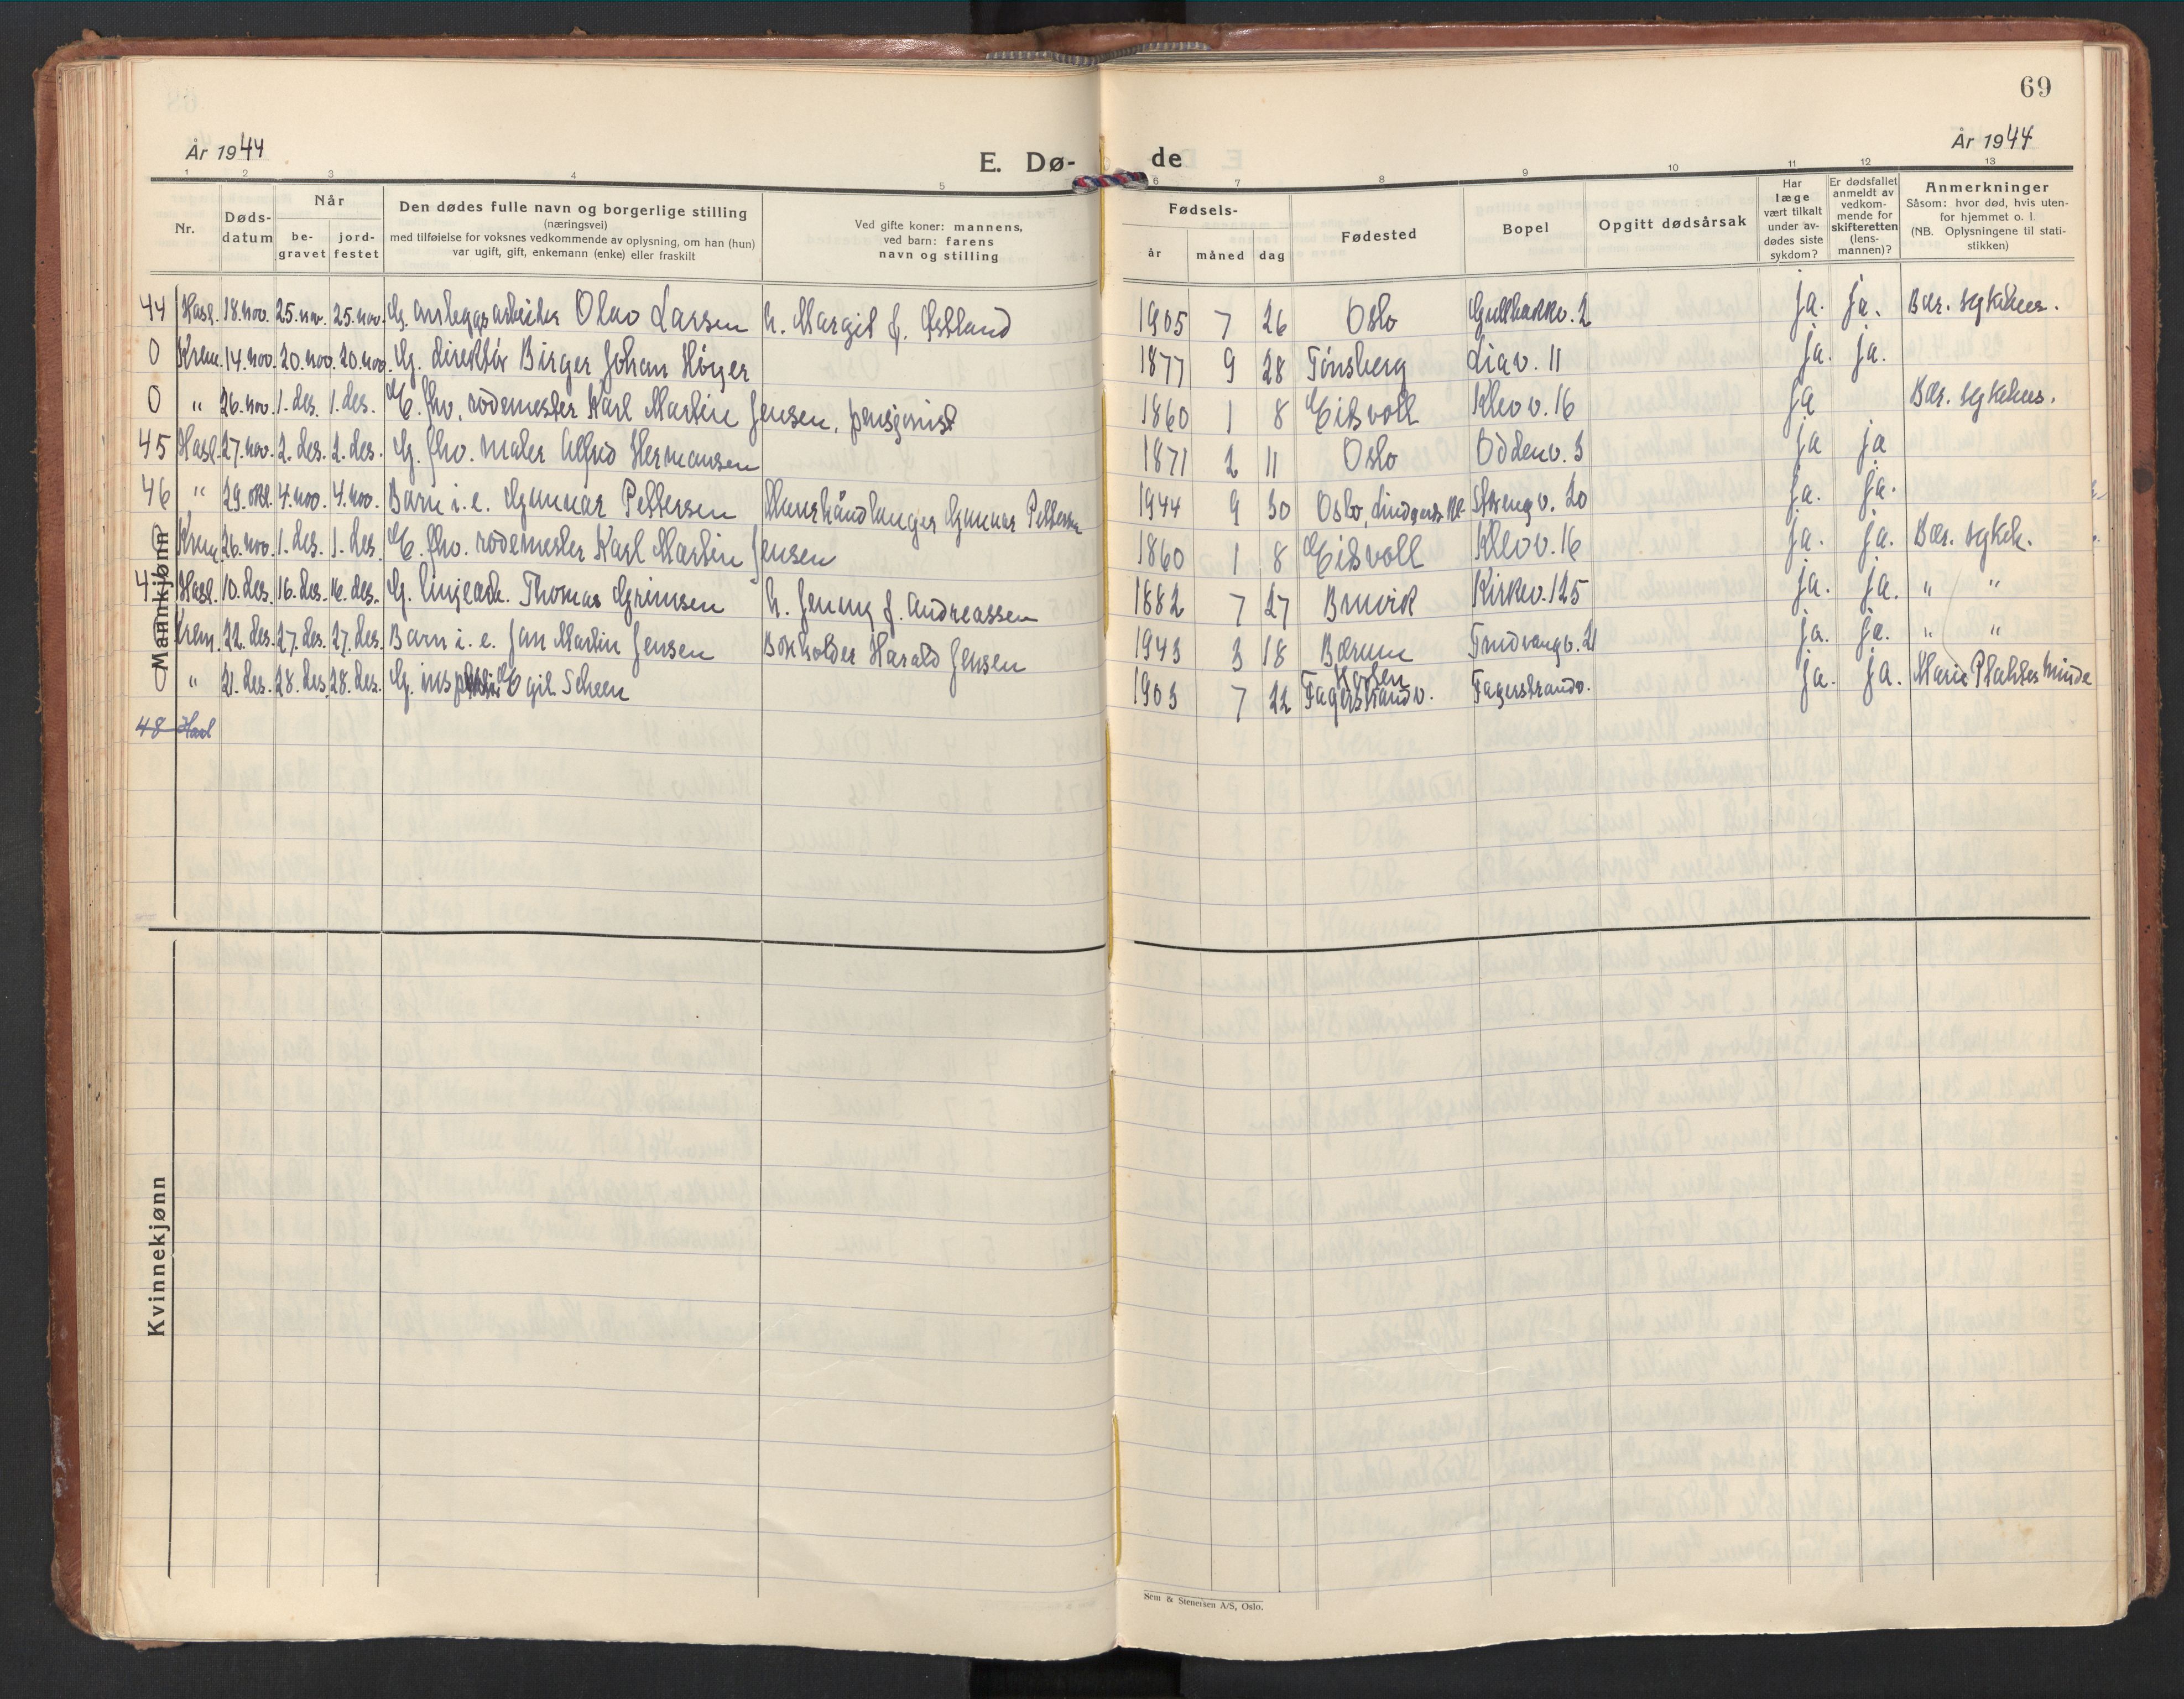 69
År 1944
År 1944
E. Dø-
de
1 2 3 4 5 6 7 8 9 10 11 12 13
Nr.
Døds-
datum
Når
be-
gravet
jord-
festet
Den dødes fulle navn og borgerlige stilling
(næringsvei)
med tilføielse for voksnes vedkommende av oplysning, om han (hun)
var ugift, gift, enkemann (enke) eller fraskilt
Ved gifte koner: mannens,
ved barn: farens
navn og stilling
Fødsels-
år måned dag
Fødested
Bopel
Opgitt dødsårsak
Har
læge
vært tilkalt
under av-
dødes siste
sykdom?
Er dødsfallet
anmeldt av
vedkom-
mende for
skifteretten
(lens-
mannen)?
Anmerkninger
Såsom: hvor død, hvis uten-
for hjemmet o. l.
(NB. Oplysningene til stati-
stikken)
44 Hasl. 18. nov. 25. nov. 25. nov. G. anleggsarbeider Olav Larsen h. Margit f. Østland 1905 7 26 Oslo Gullbakkv. 2 ja. ja. Bær. sykehus.
0 Krem. 14. nov. 20. nov. 20. nov. G. direktør Birger Johan Høyer 1877 9 28 Tønsberg Liav. 11 ja. ja.
0 " 26. nov. 1. des. 1. des. E. fhv. rodemester Karl Martin Jensen, pensjonist 1860 1 8 Eidsvoll Kleivv. 16 ja Bær. sykehus.
45 Hasl. 27. nov. 2. des. 2. des. G. fhv. maler Alfred Hermansen 1871 2 11 Oslo Oddenv. 3 ja ja
46 " 29. okt. 4. nov. 4. nov. Barn i. e. Gunnar Pettersen Murerhåndlanger Gunnar Pettersen 1944 9 30 Oslo, Strengv. 20 ja. ja.
0 Krem. 26. nov. 1. des. 1. des. E. fhv. rodemester Karl Martin Jensen 1860 1 8 Eidsvoll Kleivv. 16 ja. ja. Bær. sykeh.
4 Hasl. 10. des. 16. des. 16. des. G. linjearb. Thomas Grimsen h. Jenny f. Andreassen 1882 7 27 Bruvik Kirkev. 125 ja. ja. " "
0 Krem. 22. des. 27. des. 27. des. Barn i. e. Jan Martin Jensen Bokholder Harald Jensen 1943 3 18 Bærum Trudvangv. 21 ja. ja. " "
0 " 21. des. 28. des. 28. des. G. Egil Scheen 1903 7 22 Horten Fagerstrandv. Fagerstrandv. ja. ja. Marie Plahtes Minde
48 Hasl
Mannkjønn
Kvinnekjønn
Sem & Stenersen A/S, Oslo.